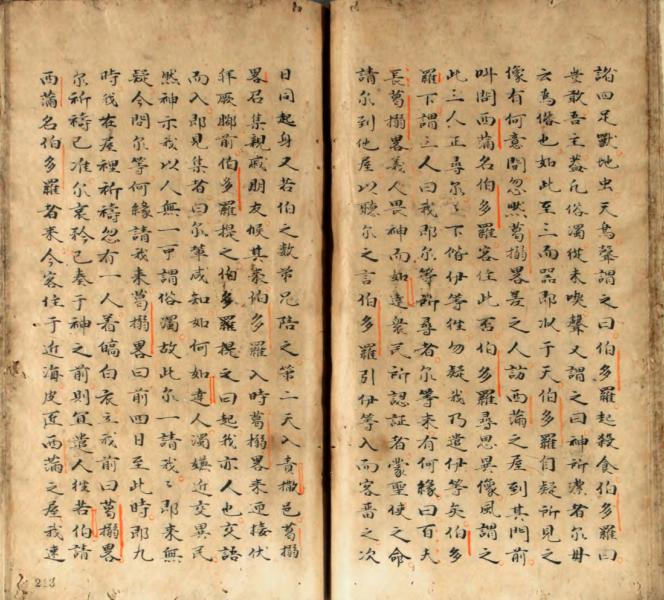 諸四足獸地虫天鳥聲謂之曰伯多羅起殺食伯多羅曰
豈敢吾主蓋凡俗濁從未喫聲又謂之曰神所潔者尔毋
云為俗也如此至三而器即收于天伯多羅自疑所見之
像有何意間忽然葛搦畧差之人訪西蒲之屋到其門前
叫問西蒲名伯多羅客住此否伯多羅尋思異像風謂之
此三人正尋尔〻下偕伊等徃勿疑我乃遣伊等矣伯多
羅下謂三人曰我即尔等所尋者尔等來有何緣曰百夫
長葛搦畧義人畏神而如達衆民所認証者蒙聖使之命
請尔到他屋以聽尔之言伯多羅引伊等入而客畱之次
日同起身又若伯之数弟兄陪之第二天入責撒邑葛搦
畧召集親戚朋友候其來伯多羅入時葛搦畧來迎接伏
拜厥脚前伯多羅提之伯多羅提之曰起我亦人也交語
而入即見集者曰尔輩咸知如何如達人濁嫌近交異民
然神示我以人無一可謂俗濁故此尔一請我〻即來無
疑今問尔等何緣請我來葛搦畧曰前四日至此時即九
時我在屋裡祈祷忽有一人着縞白衣立我前曰葛搦畧
尔祈祷已准尔哀矜已奏于神之前則宜遣人徃若伯請
西蒲名伯多羅者來今客住于近海皮匠西蒲之屋我速
213